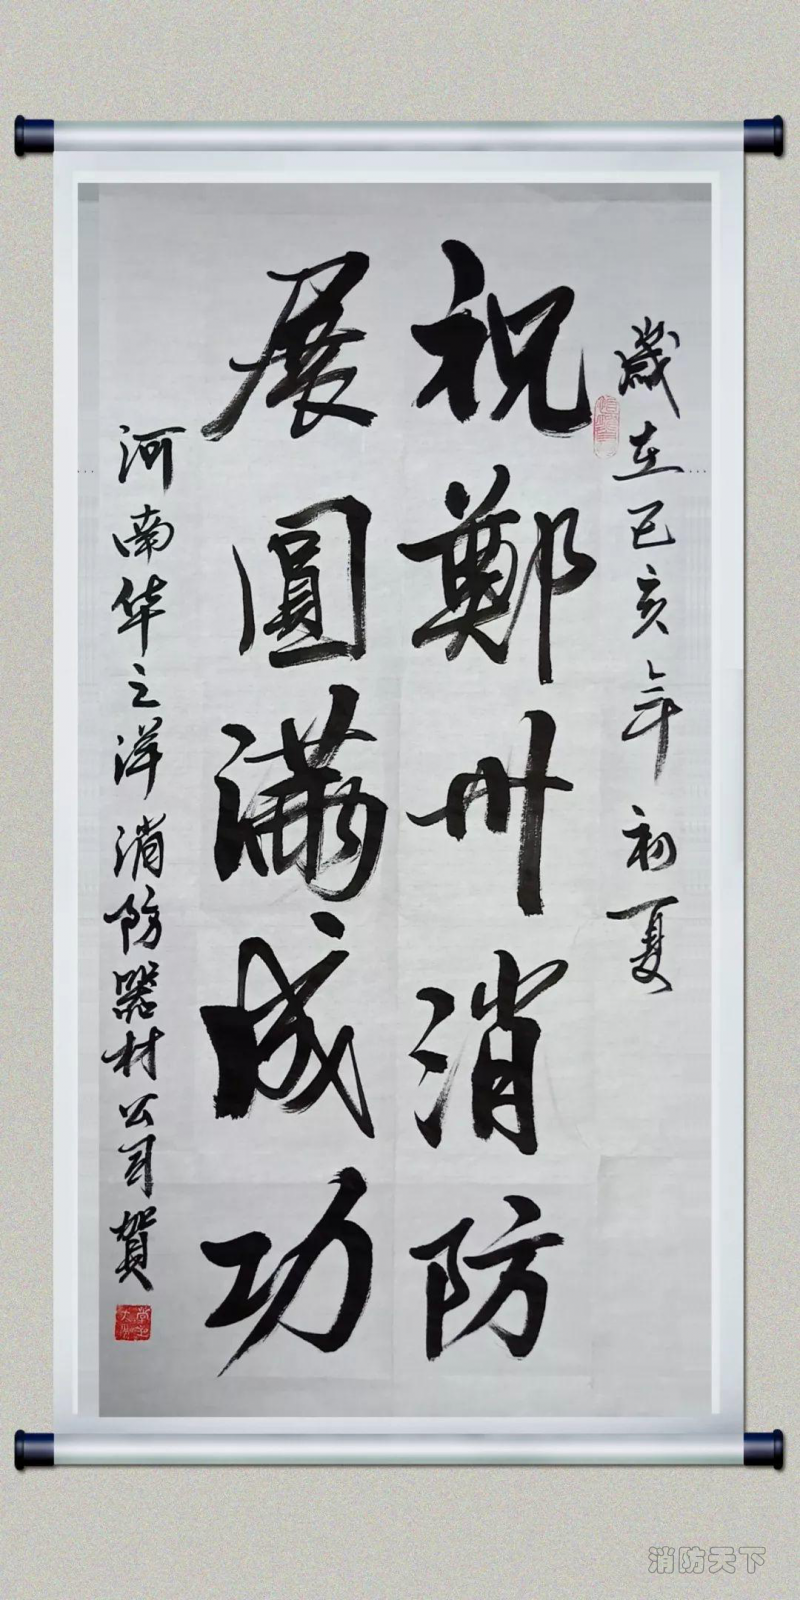 歲在己亥年初夏
祝鄭州消防
展圓满成功
河南华之洋消防器材公司賀
消防天下